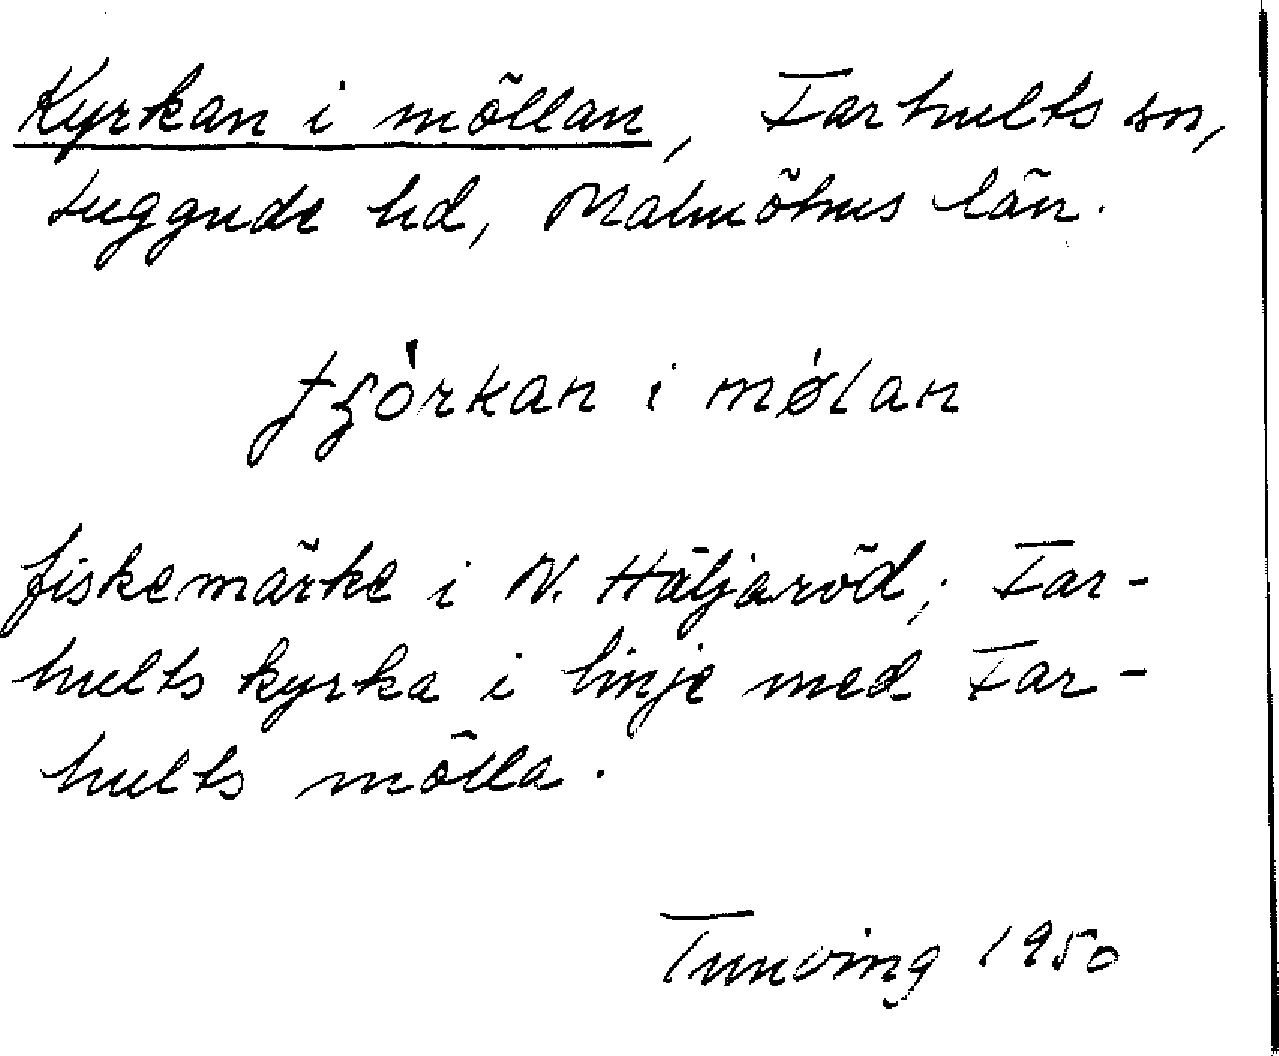 Kyrkan i möllan, Farhults sn,
Luggude hd, Malmöhus län.
i mølan
fiskemärke i N. Häljaröd; Far-
hults kyrka i linje med Far-
hults mölla.
Tunving 1950